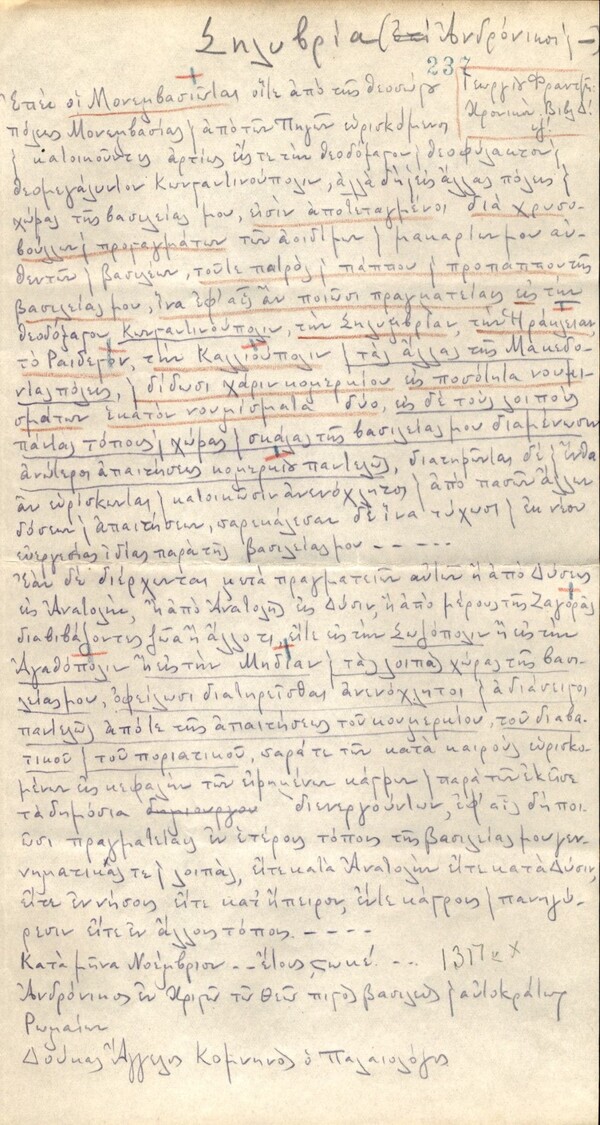 Σηλυβρία (ἐπὶ Ἀνδρόνικος –)
237
Γεωργίου Φραντζῆ
Χρονικὰ, Βιβλ. Δ!
Ἐπεὶ οἱ Μονεμβασιῶται οἵτε ἀπὸ τῆς θεοσώστου
πόλεως Μονεμβασίας καὶ ἀπὸ τῶν Πηγῶν εὑρισκόμενοι
καὶ κατοικοῦντες ἀρτίως εἴς τε τὴν θεοδόξαστον καὶ θεοφύλακτον καὶ
θεομεγάλυντον Κωνσταντινούπολιν, ἀλλὰ δὴ καὶ εἰς ἄλλας πόλεις καὶ
χώρας τῆς βασιλείας μου, εἰσὶν ἀποτεταγμένοι διὰ χρυσο-
βούλλων καὶ προσταγμάτων τῶν ἀοιδίμων καὶ μακαρίων μου αὐ-
θεντῶν καὶ βασιλέων, τοῦτε πατρὸς καὶ πάππου καὶ προπάππου τῆς
βασιλείας μου, ἵνα ἐφ' αἷς ἂν ποιῶσι πραγματείαις εἰς τὴν
θεοδόξαστον Κωνσταντινούπολιν, τὴν Σηλυμβρίαν, τὴν Ἡράκλειαν,
τὸ Ραιδεστὸν, τὴν Καλλιούπολιν καὶ τὰς ἄλλας τῆς Μακεδο-
νίας πόλεις, καὶ δίδωσι χάριν κομερκίου εἰς ποσότητα νουμι-
σμάτων ἑκατὸν νουμίσματα δύο, εἰς δὲ τοὺς λοιποὺς
πάντας τόπους καὶ χώρας καὶ σκάλας τῆς βασιλείας μου διαμένωσιν
ἀνώτεροι ἀπαιτήσεως κομερκίου παντελῶς, διατηρῶνται δὲ καὶ ἔνθα
ἂν εὑρίσκωνται καὶ κατοικῶσιν ἀνενόχλητοι καὶ ἀπὸ πασῶν ἄλλων
δόσεων καὶ ἀπαιτήσεων, παρεκάλεσαν δὲ ἵνα τύχωσι καὶ ἐκ νέου
εὐεργεσίας ἰδίας παρὰ τῆς βασιλείας μου – – – – –
Ἐὰν δὲ διέρχωνται μετὰ πραγματειῶν αὐτῶν ἢ ἀπὸ Δύσεως
εἰς Ἀνατολὴν, ἢ ἀπὸ Ἀνατολῆς εἰς Δύσιν, ἢ ἀπὸ μέρους τῆς Ζαγορᾶς
διαβιβάζοντες ζῶα ἢ ἄλλο τι, εἴτε εἰς τὴν Σωζόπολιν ἢ εἰς τὴν
Ἀγαθόπολιν ἢ εἰς τὴν Μήδειαν καὶ τὰς λοιπὰς χώρας τῆς βασι-
λείας μου, ὀφείλωσι διατηρεῖσθαι ἀνενόχλητοι καὶ ἀδιάσειστοι
παντελῶς ἀπό τε τῆς ἀπαιτήσεως τοῦ κουμερκίου, τοῦ διαβα-
τικοῦ καὶ τοῦ ποριατικοῦ, παρά τε τῶν κατὰ καιροὺς εὑρισκο-
μένων εἰς κεφαλὴν τῶν εἰρημένων κάστρων καὶ παρὰ τῶν ἐκεῖσε
τὰ δημόσια διενεργούντων, ἐφ' αἷς δὴ ποι-
ῶσι πραγματείαις ἐν ἑτέροις τόποις τῆς βασιλείας μου γεν-
νηματικάς τε καὶ λοιπὰς, εἴτε κατὰ Ἀνατολὴν εἴτε κατὰ Δύσιν,
εἴτε ἐν νήσοις εἴτε κατ' ἤπειρον, εἴτε κάστροις καὶ πανηγύ-
ρεσιν εἴτε ἐν ἄλλοις τόποις. – – – –
Κατὰ μῆνα Νοέμβριον – – ἔτους ϛωκέ. – – 1317
Ἀνδρόνικος ἐν Χριστῷ τῷ Θεῷ πιστὸς βασιλεὺς καὶ αὐτοκράτωρ
Ρωμαίων
Δούκας Ἄγγελος Κομνηνὸς ὁ Παλαιολόγος